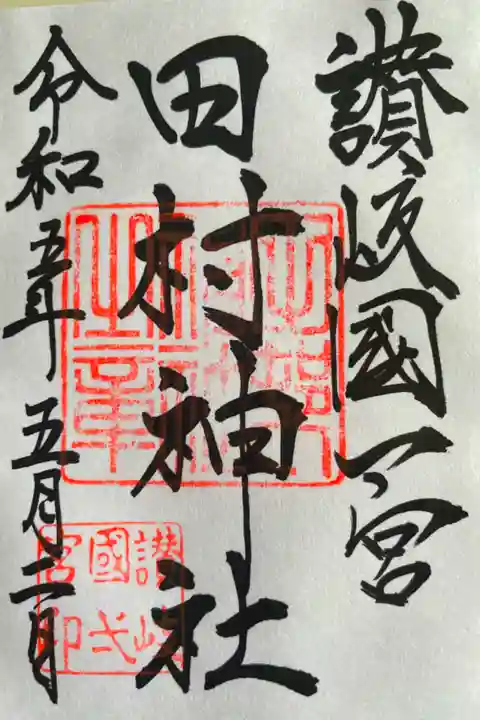 讃岐國一宮
田村神社
令和五年五月二日
讃岐
國弌
宮印